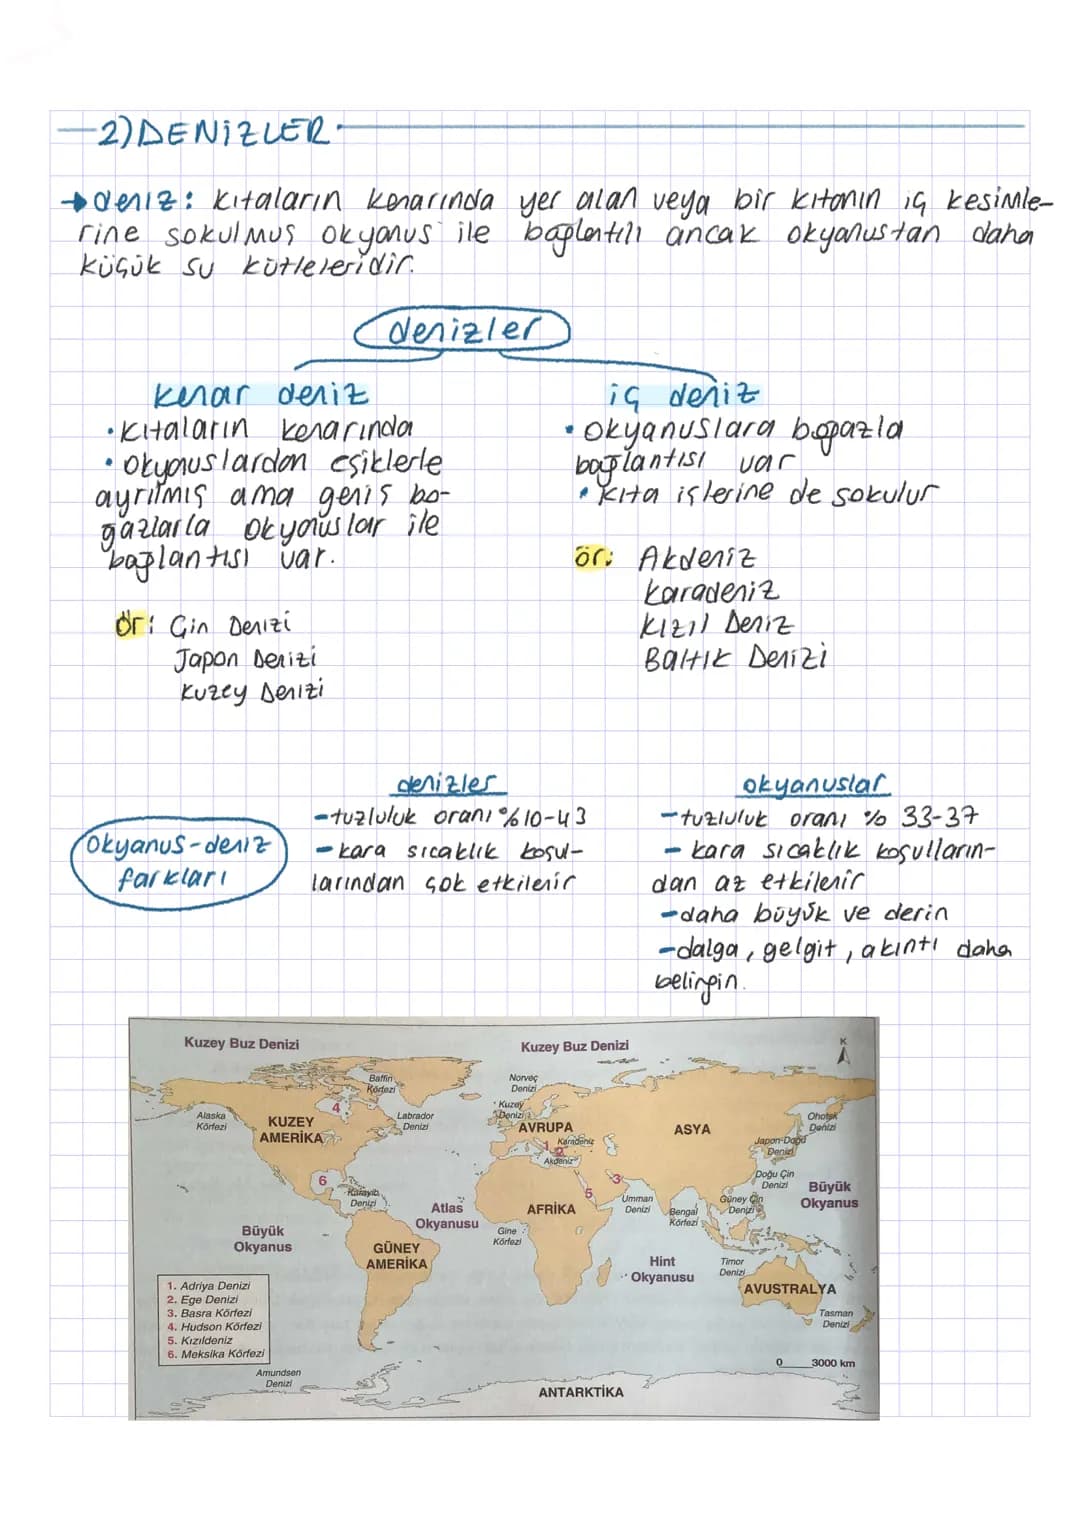 2) DENİZLER
→ deniz: kıtaların kenarında yer alan veya bir kıtanın iç kesimle-
rine sokulmuş okyanus ile bağlantılı ancak okyanustan daha
küçük su kütleleridir.
denizler
kenar deniz
• kıtaların kenarında
• okyanuslardan eşiklerle
ayrılmış ama geniş bo-
ğazlarla okyanuslar ile
bağlantısı var.
ör: Çin Denizi
Japon Denizi
Kuzey Denizi
iç deniz
• okyanuslara boğazla
bağlantısı var
• kıta içlerine de sokulur
ör: Akdeniz
Karadeniz
Kızıl Deniz
Baltık Denizi
Okyanus-deniz
farkları
denizler
-tuzluluk oranı %10-43
- kara sıcaklık koşul-
larından çok etkilenir
okyanuslar
-tuzluluk oranı % 33-37
- kara sıcaklık koşulların-
dan az etkilenir
-daha büyük ve derin
-dalga, gelgit, akıntı daha
belirgin.
Kuzey Buz Denizi
Kuzey Buz Denizi
K
Baffin
Körfezi
Norveç
Denizi
Alaska
Körfezi
4
KUZEY
AMERİKA
Labrador
Denizi
Kuzey
Denizi
AVRUPA
Karadeniz
1
2
Akdeniz
ASYA
Ohotsk
Denizi
Japon-Doğu
Denizi
6
Karayib
Denizi
Atlas
Okyanusu
AFRİKA
5
3
Umman
Denizi
Bengal
Körfezi
Güney Çin
Denizi
Doğu Çin
Denizi
Büyük
Okyanus
Büyük
Okyanus
GÜNEY
AMERİKA
Gine
Körfezi
Hint
Okyanusu
Timor
Denizi
AVUSTRALYA
Tasman
Denizi
1. Adriya Denizi
2. Ege Denizi
3. Basra Körfezi
4. Hudson Körfezi
5. Kızıldeniz
6. Meksika Körfezi
Amundsen
Denizi
ANTARKTİKA
0 3000 km